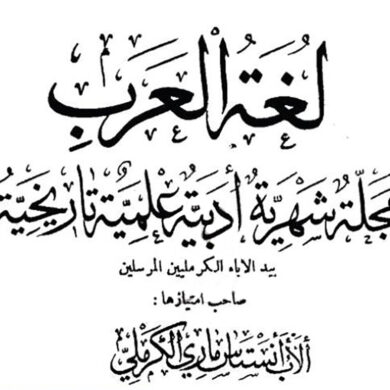 لغة العرب
مجلة شهرية أدبية علمية تاريخية
بيد الاباء الكرمليين المرسلين
صاحب امتيازها :
ألأب أنستاس ماري الكرملي